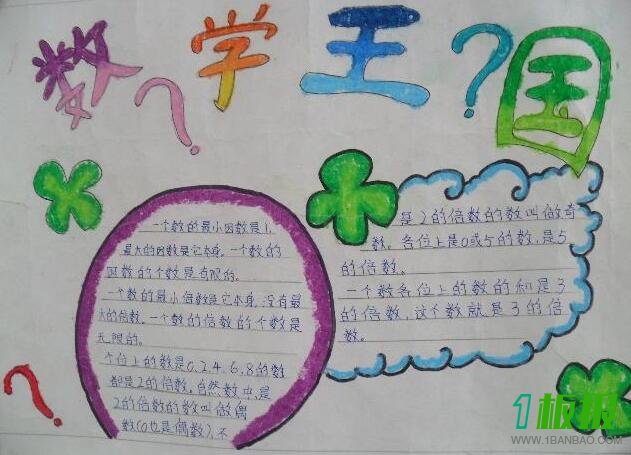 数学王国
一个数的最小因数是1,
最大的因数是它本身。一个数的
因数的个数是有限的。
一个数的最小倍数是它本身,没有最
大的倍数。一个数的倍数的个数是
无限的。
个位上的数是0.2.4.6.8的数
都是2的倍数。自然数中,是
2的倍数的数叫做偶
数(0也是偶数),不
是2的倍数的数叫做奇
数。各位上是0或5的数,是5
的倍数。
一个数各位上的数的和是3
的倍数,这个数就是3的倍
数。
1板报
WWW.1BANBAO.COM